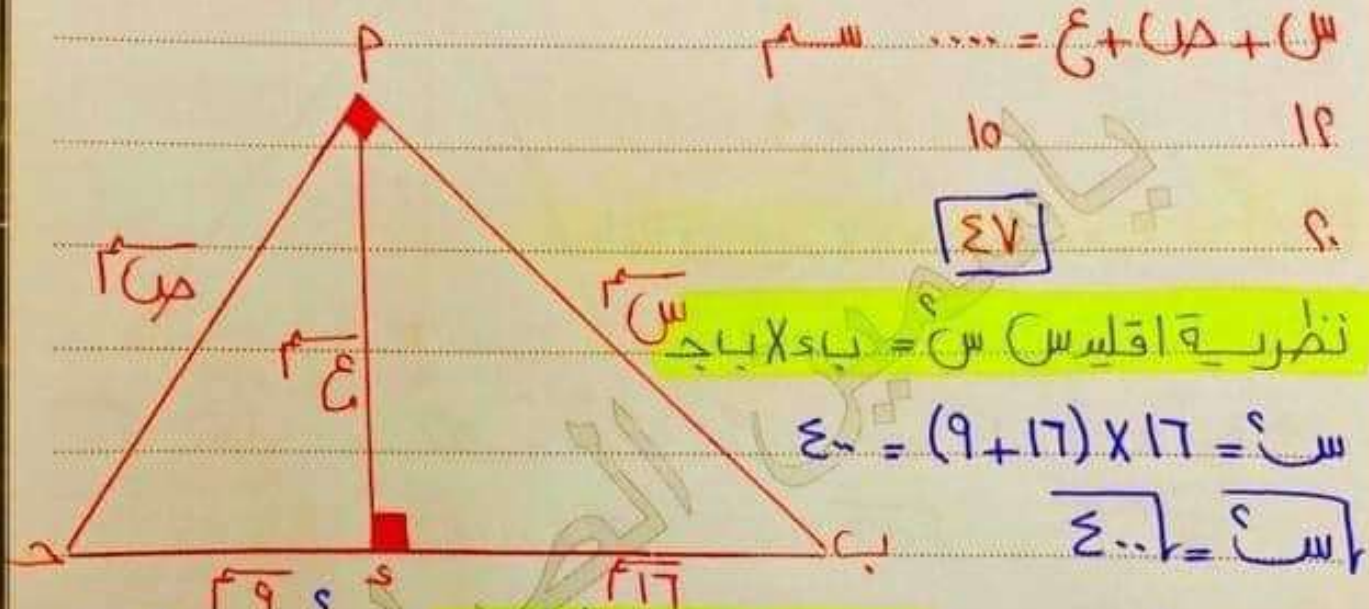 س + ص + ع = ..... سم
١٢ ١٥
٢٠ ٤٧
نظرية اقليدس س² = ب د × ب ج
س² = ١٦ × (١٦ + ٩) = ٤٠٠
√س² = √٤٠٠
أ
ص سم
ع سم
س سم
ج
د
ب
٩ سم
١٦ سم